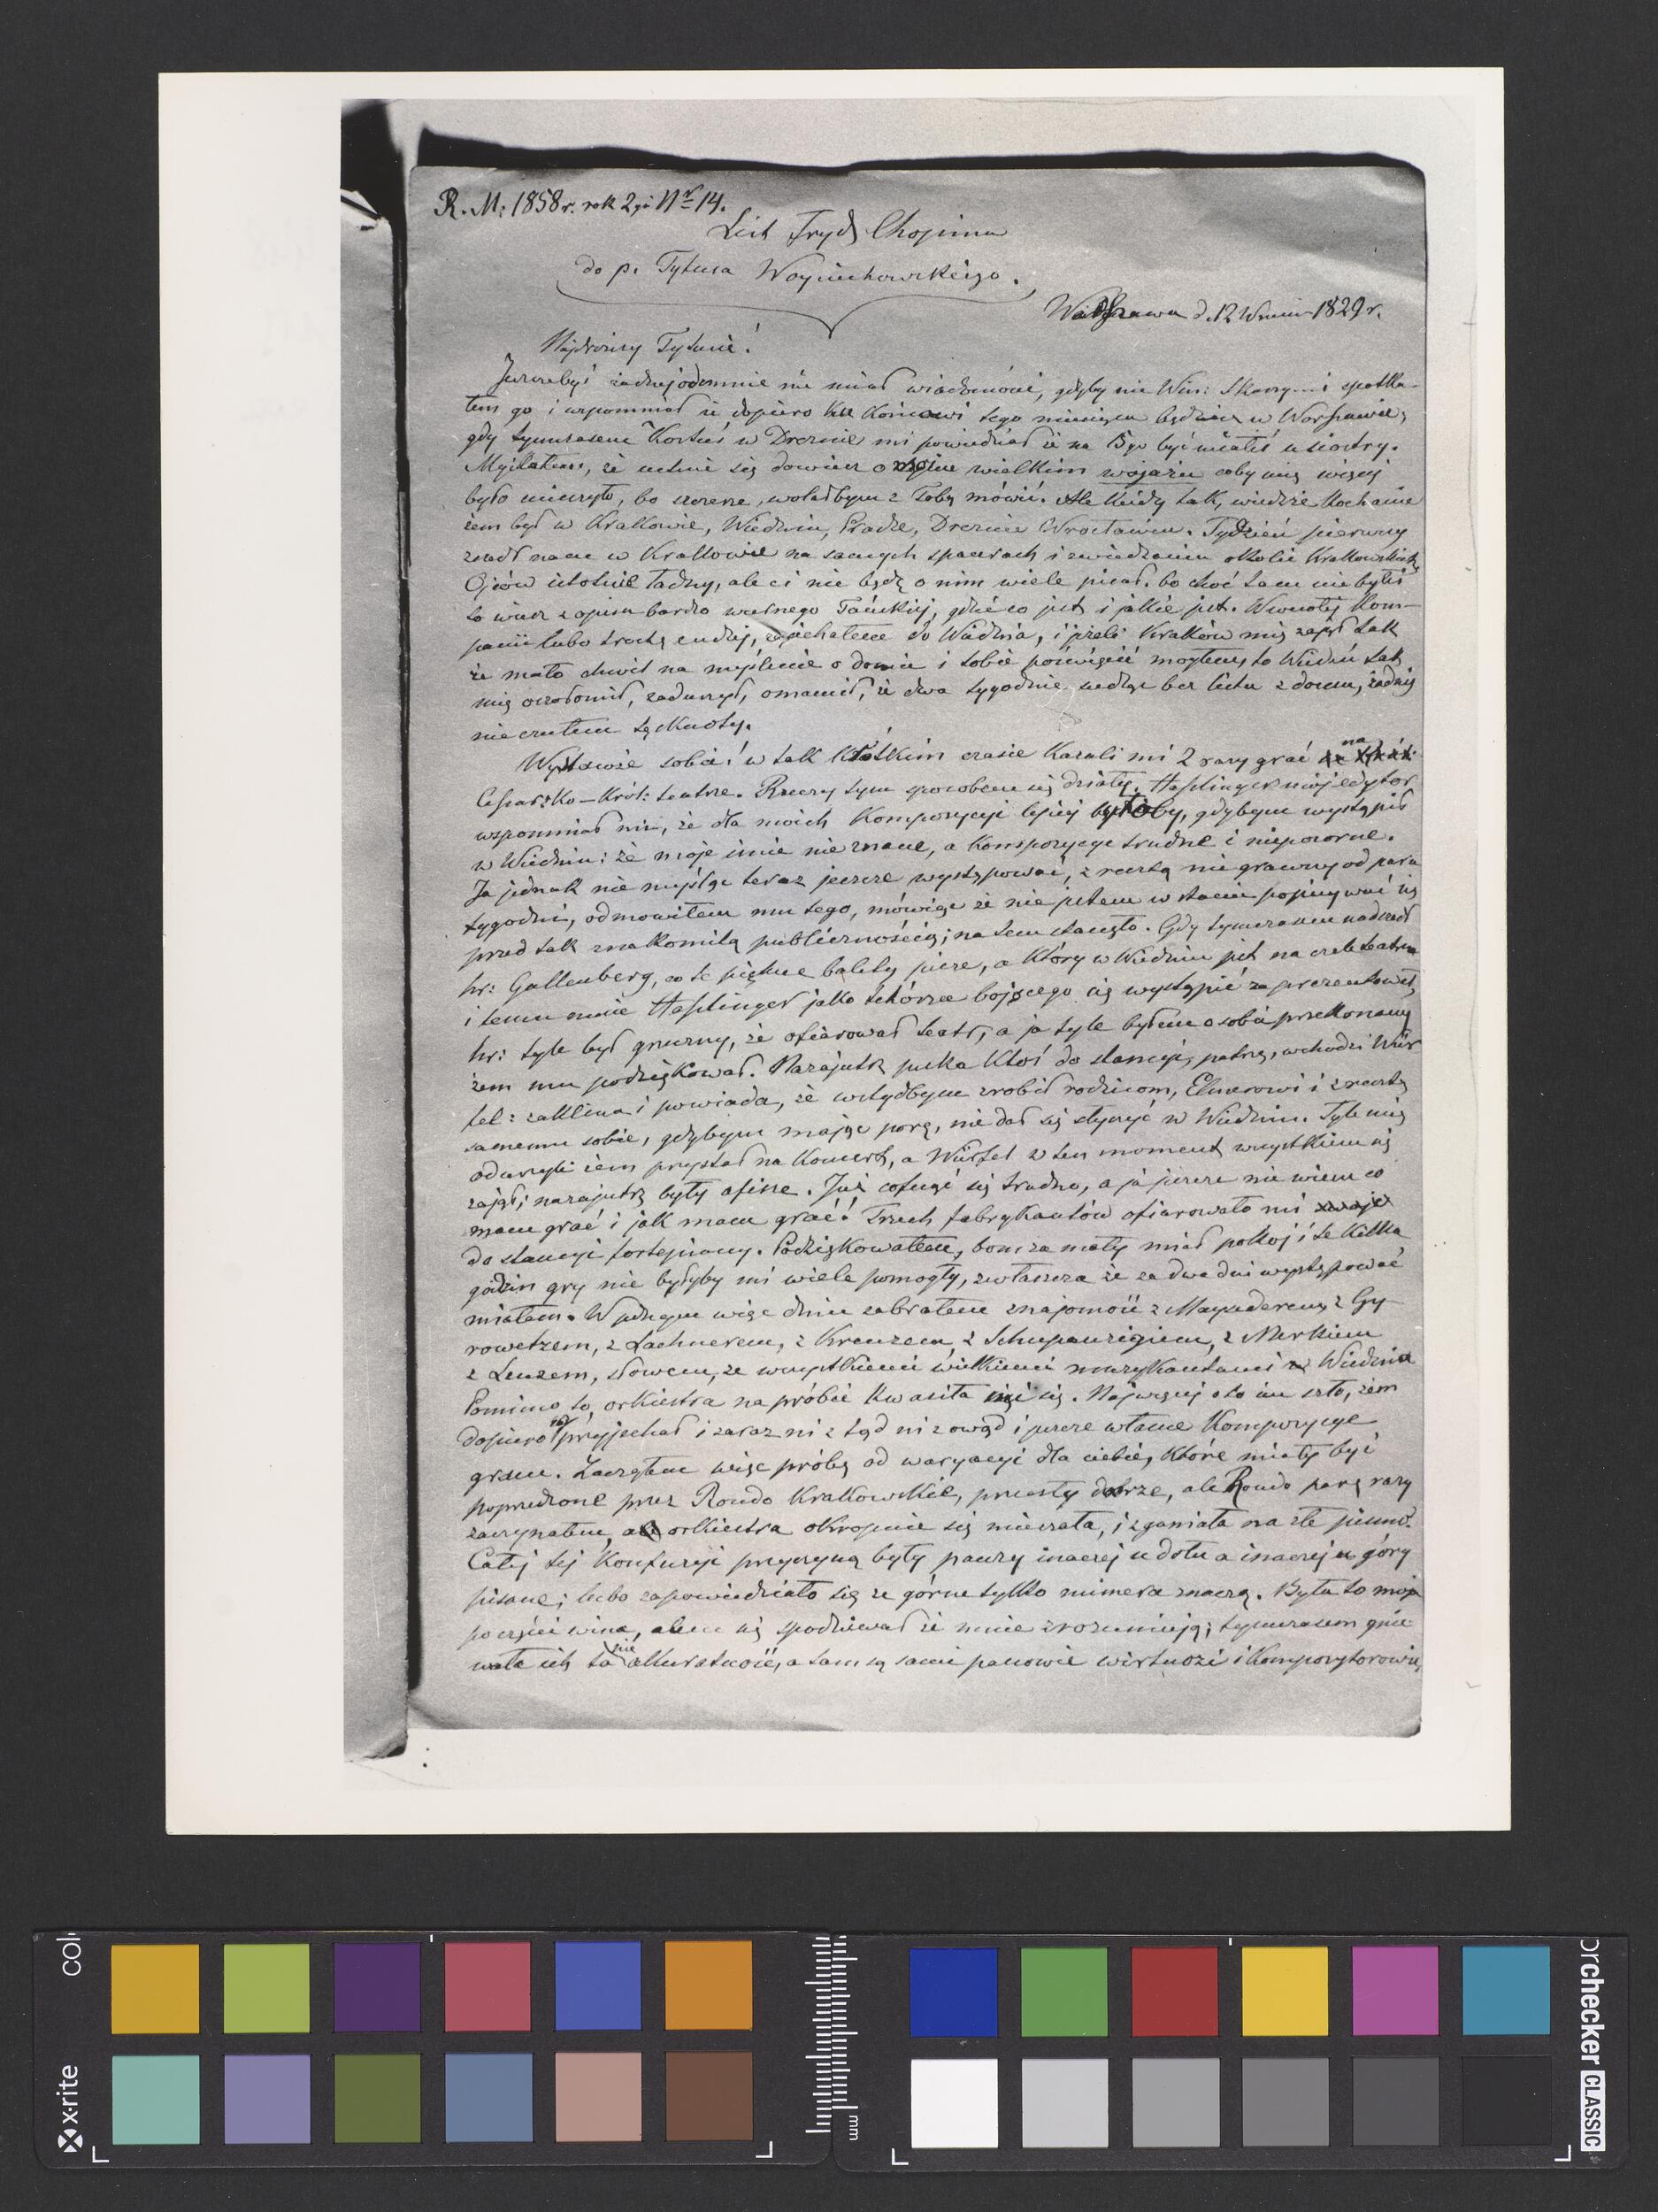 R. M: 1858 r. rok 2gi Nr 14.
List Fryd Chopina
do p. Tytusa Woyciechowskiego.
Warszawa d. 12 Wrześn 1829 r.
Najdroższy Tytusie!
Jeszczebyś żadnej odemnie nie miał wiadomości, gdyby nie Win: Skarzy... i spotka-
łem go i wspomniał że dopiero ku końcowi tego miesiąca będziesz w Warszawie,
gdy tymczasem Kostuś w Dreznie mi powiedział że na 15go być miałeś u siostry.
Myślałem, że ustnie się dowiesz o moim wielkim wojażu coby mię więcej
było cieszyło, bo szczerze, wolałbym z Tobą mówić. Ale kiedy tak, wiedzże kochanie
żem był w Krakowie, Wiedniu, Pradze, Dreznie Wrocławiu. Tydzień pierwszy
zeszedł nam w Krakowie na samych spacerach i zwiedzaniu okolic Krakowskich
Ojców istotnie ładny, ale ci nie będę o nim wiele pisał. bo choć tam nie byłeś
to wiesz z opisu bardzo wiernego Tańskiej, gdzie co jest i jakie jest. W wesołej kom-
panii lubo trochę cudzej, zajechałem do Wiednia, i jeżeli Kraków mię zajął tak
że mało chwil na myślenie o domu i tobie poświęcić mogłem, to Wiedeń tak
mię oszołomił, zadurzył, omamił, że dwa tygodnie siedząc bez listu z domu, żadnej
nie czułem tęsknoty.
Wystawże sobie! w tak krótkim czasie kazali mi 2 razy grać na
Cesarsko-Król: teatrze. Rzeczy tym sposobem się działy. Haslinger mój edytor
wspomniał mi, że dla moich Kompozycyi lepiej byłoby, gdybym wystąpił
w Wiedniu: że moje imie nie znane, a Kompozycye trudne i niepozorne.
Ja jednak nie myśląc teraz jeszcze występować, z resztą nie grawszy od paru
tygodni, odmówiłem mu tego, mówiąc że nie jestem w stanie popisywać się
przed tak znakomitą publicznością; na tem stanęło. Gdy tymczasem nadszedł
hr: Gallenberg, co to piękne balety pisze, a który w Wiedniu jest na czele teatru
i temu mnie Haslinger jako tchórza bojącego się wystąpić zaprezentował,
hr: tyle był grzeczny, że ofiarował teatr, a ja tyle byłem o sobie przekonany
żem mu podziękował. Nazajutrz puka ktoś do stancyi, patrzę, wchodzi Wür
fel: zaklina i powiada, że wstydbym zrobił rodzicom, Elsnerowi i z resztą
samemu sobie, gdybym mając porę, nie dał się słyszeć w Wiedniu. Tyle mię
odurzyli żem przystał na Koncert, a Würfel w ten moment wszystkiem się
zajął; nazajutrz były afisze. Już cofnąć się trudno, a ja jeszcze nie wiem co
mam grać i jak mam grać! Trzech fabrykantów ofiarowało mi swoje
do stancyi fortepiany. Podziękowałem, bom za mały miał pokój i te kilka
godzin gry nie byłyby mi wiele pomogły, zwłaszcza że za dwa dni występować
miałem. W jednym więc dniu zabrałem znajomość z Mayzederem, z Gy-
rowetzem, z Lachnerem, z Kreuzem, z Schupanzigiem, z Merkiem
z Lewzem, słowem, ze wszystkiemi wielkiemi muzykantami Wiednia
Pomimo to, orkiestra na próbie kwasiła się. Najwięcej oto im szło, żem
dopiero co przyjechał i zaraz ni z tąd ni z owąd i jeszcze własne Kompozycye
gram. Zacząłem więc próbę od waryacyi dla ciebie, które miały być
poprzedzone przez Rondo Krakowskie, przeszły dobrze, ale Rondo parę razy
zaczynałem, ale orkiestra okropnie się mieszała, i zganiała na złe pismo.
Całej tej konfuzyi przyczyną były pauzy inaczej u dołu a inaczej u góry
pisane; lubo zapowiedziało się że górne tylko numera znaczą. Była to moja
po części wina, alem się spodziewał że mnie zrozumieją; tymczasem gnie-
wała ich ta nieakuratność, a tam są sami panowie wirtuozi i kompozytorowie,
x-rite
colorchecker CLASSIC
mm